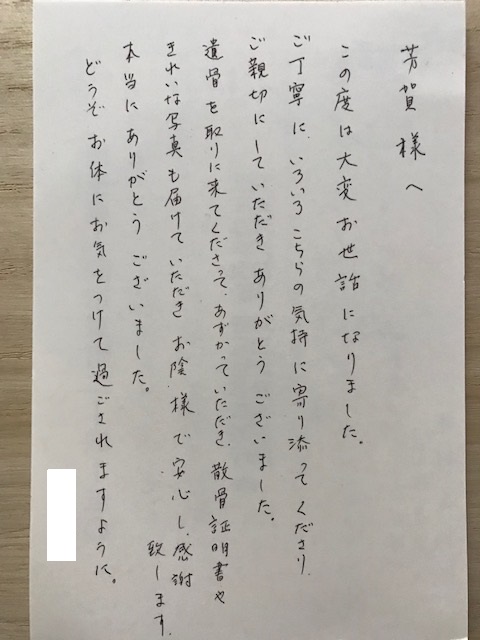 芳賀様へ
この度は大変お世話になりました。
ご丁寧に、いろいろこちらの気持に寄り添ってくださり、
ご親切にしていただきありがとうございました。
遺骨を取りに来てくださって、あずかっていただき、散骨証明書や
きれいな写真も届けていただきお陰様で安心し、感謝
致します。
本当にありがとうございました。
どうぞお体にお気をつけて過ごされますように。